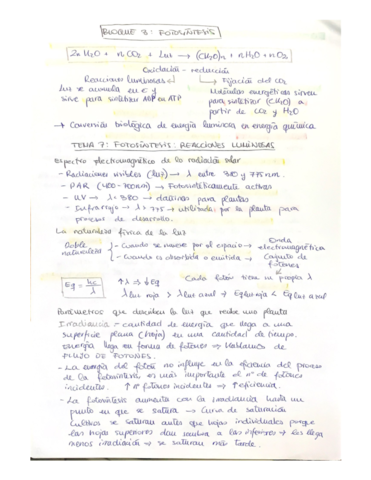 BLOQUE 3: FOTOSÍNTESIS
2n H2O + n CO2 + Luz → (CH2O)n + n H2O + n O2
Oxidación - reducción
Reacciones luminosas
Fijación del CO2
Luz se acumula en e- y
sirve para sintetizar ADP en ATP
Moléculas energéticas sirven
para sintetizar (CH2O) a
partir de CO2 y H2O
→ Conversión biológica de energía lumínica en energía química
TEMA 7: FOTOSÍNTESIS: REACCIONES LUMINOSAS
Espectro electromagnético de la radiación solar
- Radiaciones visibles (luz) → λ entre 380 y 775 nm.
- PAR (400-700nm) → Fotosintéticamente activas
- UV → λ < 380 → dañinas para plantas
- Infrarrojo → λ > 775 → utilizada por la planta para
procesos de desarrollo.
La naturaleza física de la luz
Doble
naturaleza
- Cuando se mueve por el espacio → Onda
electromagnética
- Cuando es absorbida o emitida → Conjunto de
fotones
Eq = hc/λ
↑λ ⇒ ↓Eq
Cada fotón tiene su propia λ
λ luz roja > λ luz azul → Eq luz roja < Eq luz azul
Parámetros que describen la luz que recibe una planta
Irradiancia = cantidad de energía que llega a una
superficie plana (hoja) en una cantidad de tiempo.
Energía llega en forma de fotones → Hablamos de
FLUJO DE FOTONES.
- La energía del fotón no influye en la eficiencia del proceso
de la fotosíntesis es más importante el nº de fotones
incidentes. ↑ nº fotones incidentes → ↑ eficiencia.
- La fotosíntesis aumenta con la irradiancia hasta un
punto en que se satura → Curva de saturación
Cultivos se saturan antes que hojas individuales porque
las hojas superiores dan sombra a las inferiores → les llega
menos irradiación → se saturan más tarde.